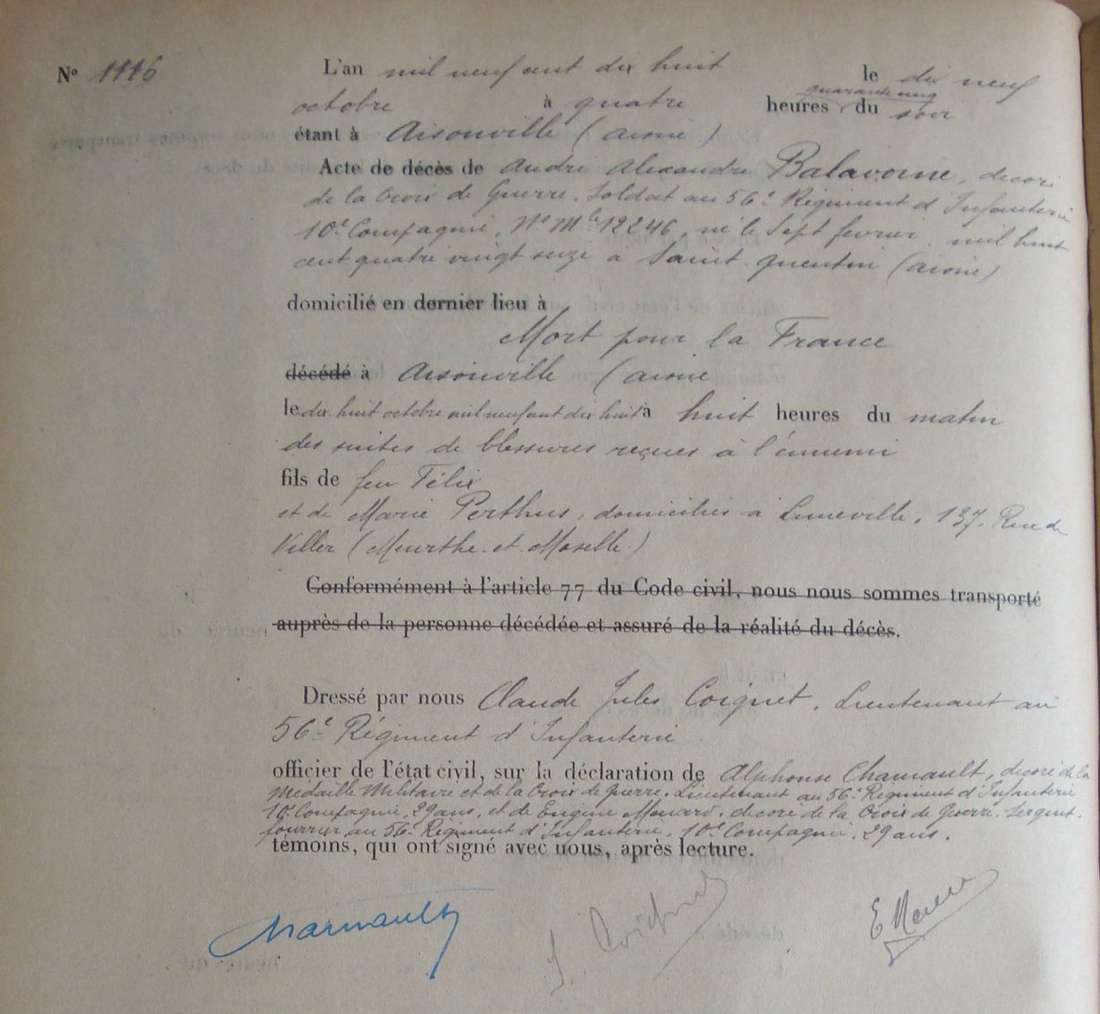 N° 1116
L'an mil neuf cent dix huit le dix neuf
octobre à quatre heures quarante cinq du soir
étant à Aisonville (aisne)
Acte de décès de André Alexandre Balavoine, décoré
de la Croix de Guerre, Soldat au 56e Régiment d'Infanterie
10e Compagnie, N° Mle 12246, né le Sept fevrier mil huit
cent quatre vingt seize à Saint-Quentin (aisne)
domicilié en dernier lieu à
Mort pour la France
décédé à Aisonville (aisne
le dix huit octobre mil neuf cent dix huit à huit heures du matin
des suites de blessures reçues à l'ennemi
fils de feu Félix
et de Marie Perthus, domiciliés à Luneville, 137, Rue de
Viller (Meurthe-et-Moselle)
Conformément à l'article 77 du Code civil, nous nous sommes transporté
auprès de la personne décédée et assuré de la réalité du décès.
Dressé par nous Claude Jules Coignet, Lieutenant au
56e Régiment d'Infanterie
officier de l'état civil, sur la déclaration de Alphonse Charnault, décoré de la
Médaille Militaire et de la Croix de guerre, Lieutenant au 56e Régiment d'Infanterie
10e Compagnie, 29 ans, et de Eugène décoré de la Croix de Guerre, Sergent
fourrier au 56e Régiment d'Infanterie, 10e Compagnie, 29 ans.
témoins, qui ont signé avec nous, après lecture.
Charnault J. Coignet E